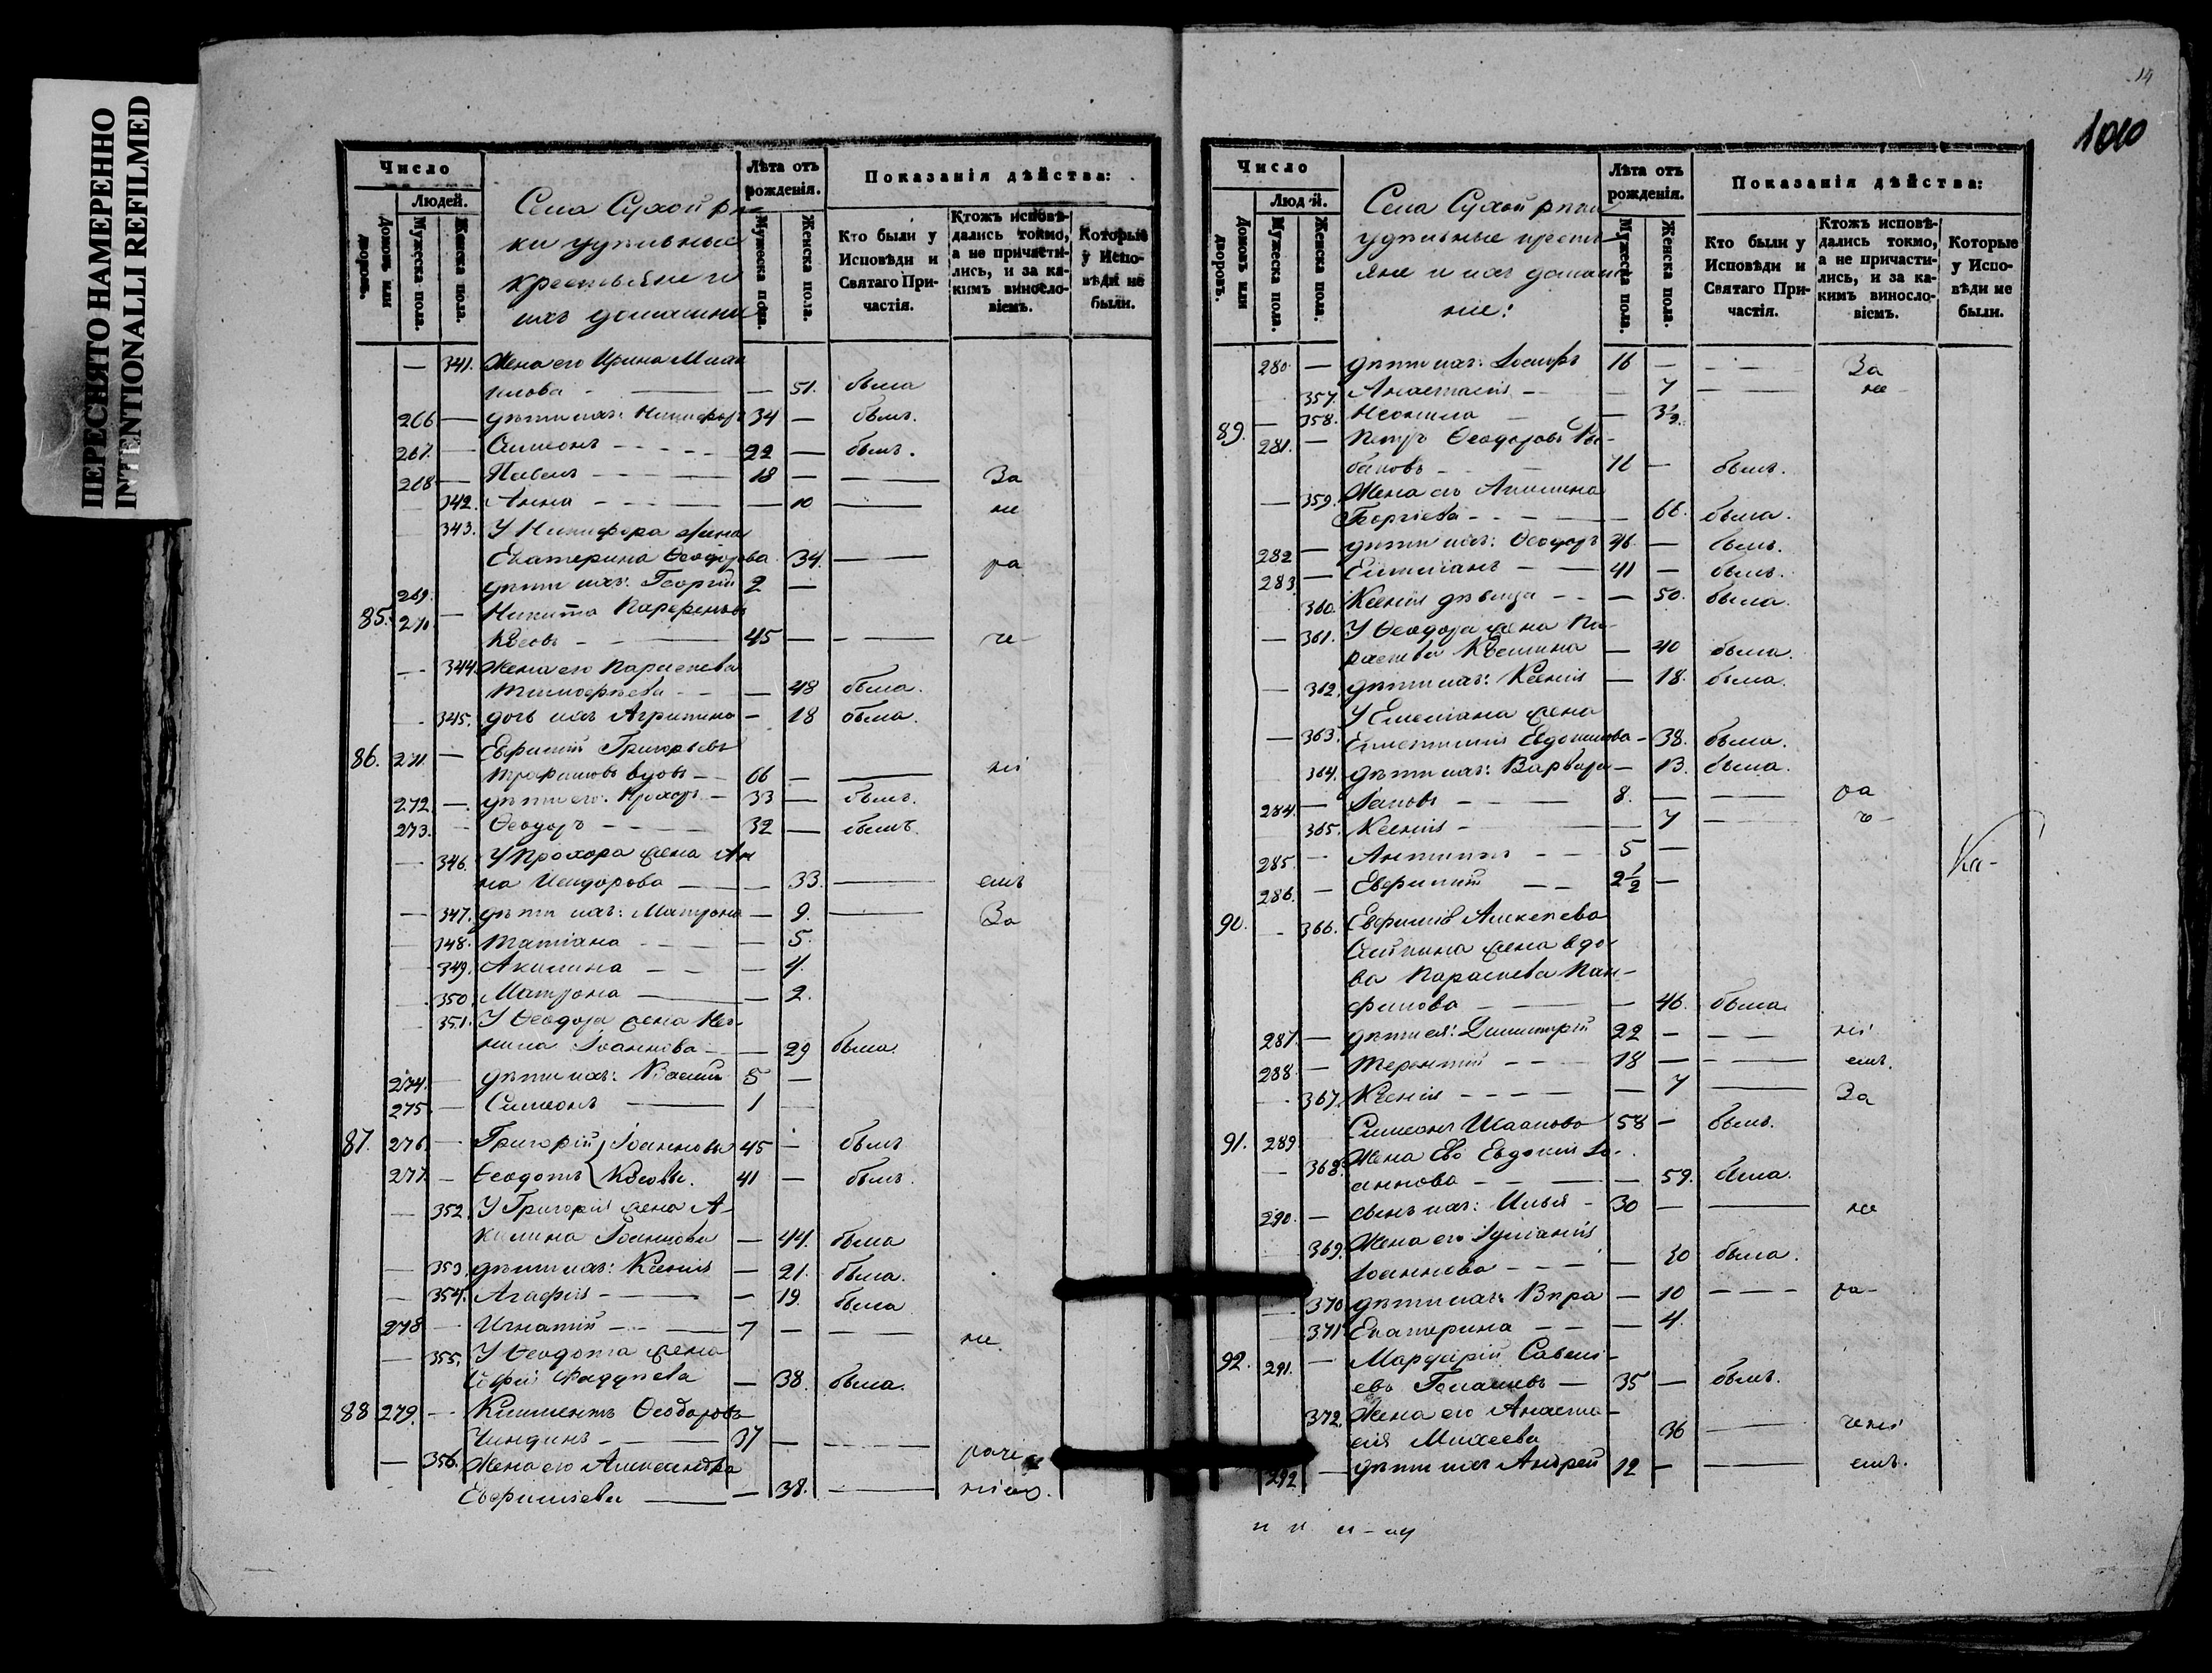 ПЕРЕСНЯТО НАМЕРЕННО
INTENTIONALLI REFILMED
Число
Людей.
Домовъ или дворовъ.
Мужеска пола.
Женска пола.
Села Сухой рѣ-
ки удѣльные
крестьяне и
ихъ домашніе
Лѣта отъ рожденія.
Мужеска пола.
Женска пола.
Показанія дѣйства:
Кто были у Исповѣди и Святаго Причастія.
Ктожъ исповѣдались токмо, а не причастились, и за какимъ винословіемъ.
Которые у Исповѣди не были.
— 341. Жена его Ирина
— 51. была
266 — дѣти ихъ: Никифоръ 34 — былъ.
267. — Симеонъ 22 — былъ.
268 — Павелъ 18 — — За
342. Анна — 10 — не
343. У Никифора жена
Екатерина Ѳеодорова 34. — ра
269. дѣти ихъ: Георгій 2 —
85. 270. — Никита
45 — — че-
— 344 Жена его Параскева
Тимоѳеева — 48 была.
345. дочь ихъ Агрипина — 18 была.
86. 271. — Евфимій Григорьевъ
Трофимовъ вдовъ 66 — — ні
272 — дѣти его: Прохоръ 33 — былъ.
273. — Ѳеодоръ 32 — былъ.
— 346. У Прохора жена Ан
на Исидорова — 33. — емъ
— 347. дѣти ихъ: Матрона — 9. — За
348. Татіана — 5.
349. Акилина — 4.
350. Матрона — 2.
351. У Ѳеодора жена Нео-
нила Іоаннова — 29 была.
274. — дѣти ихъ: Василій 5 —
275 — Симеонъ 1 —
87. 276. — Григорій } Іоанновы 45 — былъ
277. — Ѳеодотъ { 41 — былъ.
— 352. У Григорія жена А-
килина Іоаннова — 44. была
— 353. дѣти ихъ: Ксенія — 21. была.
— 354. Агафія — 19. была
278 — Игнатій 7 — — не.
— 355. У Ѳеодота жена
Софія Фаддеева — 38. была.
88 279. — Климентъ Ѳеодоровъ
Чиндинъ 37 — — раче
— 356. Жена его Александра
Евфиміева — 38. — ніемъ.
14
100
Число
Людей.
Домовъ или дворовъ.
Мужеска пола.
Женска пола.
Села Сухой рѣки
удѣльные кресть-
яне и ихъ домаш
ніе:
Лѣта отъ рожденія.
Мужеска пола.
Женска пола.
Показанія дѣйства:
Кто были у Исповѣди и Святаго Причастія.
Ктожъ исповѣдались токмо, а не причастились, и за какимъ винословіемъ.
Которые у Исповѣди не были.
280. — дѣти ихъ: Іосифъ 16 — — За
357. Анастасія — 7 — не
— 358. Неонила — 3½.
89. 281. — Петръ Ѳеодоровъ
— былъ.
— 359. Жена его Акилина
Георгіева — 66. была.
282 — дѣти ихъ: Ѳеодоръ 46. — былъ.
283 — Емиліанъ 41 — былъ.
360. Ксенія дѣвица — 50. была.
— 361. У Ѳеодора жена Па-
раскева — 40 была.
— 362. дѣти ихъ: Ксенія — 18. была.
У Емеліана жена
— 363. Евдокимова — 38. была.
364. дѣти ихъ: Варвара — 13. была.
284 — Іаковъ 8. — — ра
365. Ксенія — 7 — че-
285. — Антипъ 5 —
286. — Евфимій 2½ —
90. — 366. Евфимія Алексѣева
жена вдо-
ва Параскева Пан-
филова — 46. была.
287. — дѣти ея: Димитрій 22 — — ні
288. — Терентій 18 — — емъ.
— 367. Ксенія — 7 — За
91. 289 Симеонъ 58 — былъ.
— 368. Жена Его Евдокія Іо-
аннова — 59. была.
290. — сынъ ихъ: Илья 30 — — не
369. Жена его Іуліанія
Іоаннова — 30 была.
370 дѣти ихъ: Вѣра — 10 — ра-
371 Екатерина — 4.
92. 291. — Мардарій Савель-
евъ 35 — былъ.
372. Жена его Анаста-
сія Михеева 36 — чені
292 — дѣти ихъ Андрей 12 — — емъ.